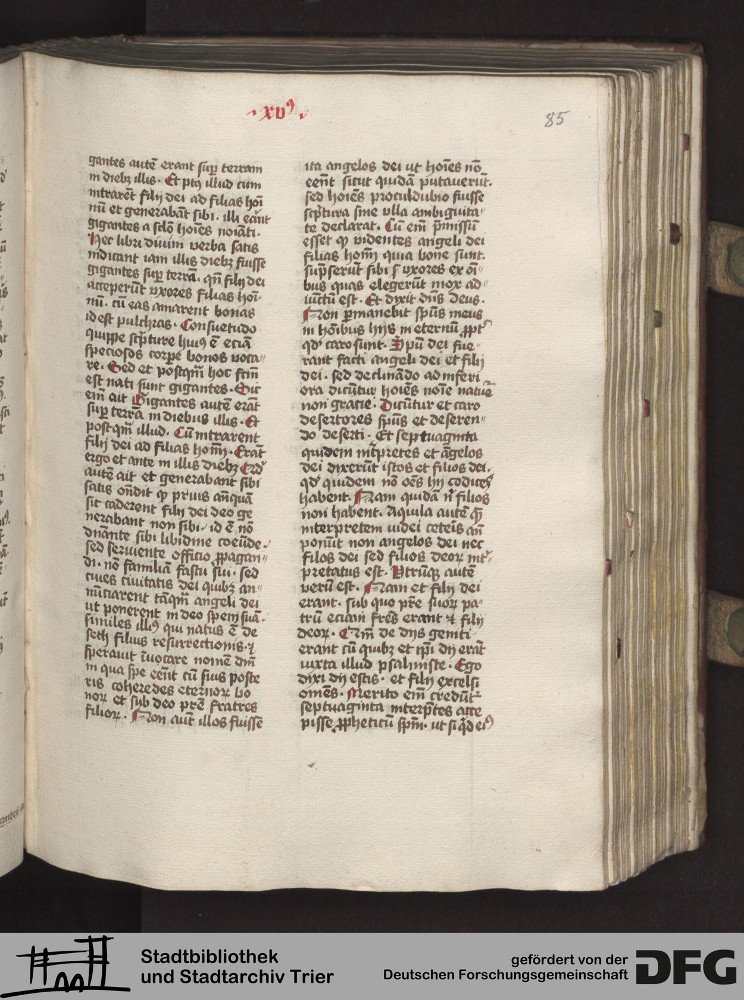 xvꝰ
85
gantes autē erant suꝑ terram
in diebꝫ illis. Et ptꝰ illud cum
intrarēt filij dei ad filias hoī
nū et generabāt sibi. illi erāt
gigantes a sclō hoīes noīati.
Hec libri diuini verba satis
indicant iam illis diebꝫ fuisse
gigantes suꝑ terrā. qn̄ filij dei
acceperūt vxores filias hoī
nū. cū eas amarent bonas
id est pulchras. Consuetudo
quippe scp̄ture huiꝰ ē eciā
speciosos corpē bonos voca
re. Sed et postqm̄ hoc fcm̄
est nati sunt gigantes. Sic
em̄ ait Gigantes autē erāt
suꝑ terrā in diebus illis. Et
postqm̄ illud. Cū intrarent
filij dei ad filias hoīm. Erāt
ergo et ante in illis diebꝫ Et ꝙ
autē ait et generabant sibi
satis ondit ꝙ prius anquā
sic caderent filij dei deo ge
nerabant non sibi. id ē nō
dnante sibi libidine coeūde.
sed seruiente officio ꝓpagan
di. nō familiā fastu sui. sed
ciues ciuitatis dei quibꝫ an
nūciarent tāqm̄ angeli dei
ut ponerent in deo spem suā.
similes illiꝰ qui natus ē de
seth filius resurrectionis. et
sperauit īuocare nomē dnī
in qua spe eēnt cū suis poste
ris coheredes eternoꝝ bo
noꝝ et sub deo prē fratres
filioꝝ. Non aūt illos fuisse
ita angelos dei ut hoīes nō
eēnt sicut quidā putauerūt.
sed hoīes proculdubio fuisse
scp̄tura sine vlla ambiguita
te declarat. Cū em̄ p̄missū
esset ꝙ videntes angeli dei
filias hoīm quia bone sunt.
sūpserūt sibi ī vxores ex oī
bus quas elegerūt mox ad
iūctū est. Et dixit dn̄s deus.
Non ꝑmanebit spūs meus
in hoībus hijs in eternū ꝓpt
qd̓ caro sunt. Spū dei fue
rant facti angeli dei et filij
dei. sed declinādo ad inferi
ora dicūtur hoīes noīe nature
non gratie. Dicūtur et caro
desertores spūs et deseren
do deserti. Et septuaginta
quidem int̄pretes et angelos
dei dixerūt istos et filios dei.
qd̓ quidem nō oēs hn̄t codices
habent. Nam quidā nī filios
non habent. Aquila autē quē
interpretem iudei ceteris an̄
ponūt non angelos dei nec
filos dei sed filios deoꝝ int̄
pretatus est. Vtrūqꝫ autē
verū est. Nam et filij dei
erant. sub quo prē suoꝝ pa
trū eciam frēs erant et filij
deoꝝ. Qm̄ de dijs geniti
erant cū quibꝫ et ipī dij erāt
iuxta illud psalmiste. Ego
dixi dij estis. et filij excelsi
omēs. Merito em̄ credūt
septuaginta interp̄tes acce
pisse ꝓpheticū spm̄. ut si qd̓ eiꝰ
Stadtbibliothek
und Stadtarchiv Trier
gefördert von der
Deutschen Forschungsgemeinschaft
DFG